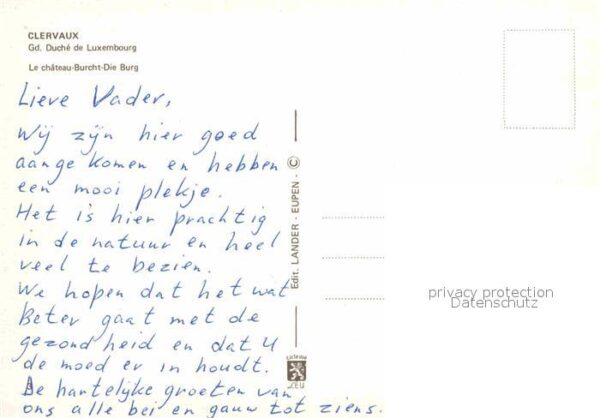 CLERVAUX
Gd. Duché de Luxembourg
Le château-Burcht-Die Burg
Lieve Vader,
Wij zijn hier goed
aangekomen en hebben
een mooi plekje.
Het is hier prachtig
in de natuur en heel
veel te bezien.
We hopen dat het wat
Beter gaat met de
gezondheid en dat U
de moed er in houdt.
De hartelijke groeten van
ons alle bei en gauw tot ziens.
Edit. LANDER - EUPEN - ©
privacy protection
Datenschutz